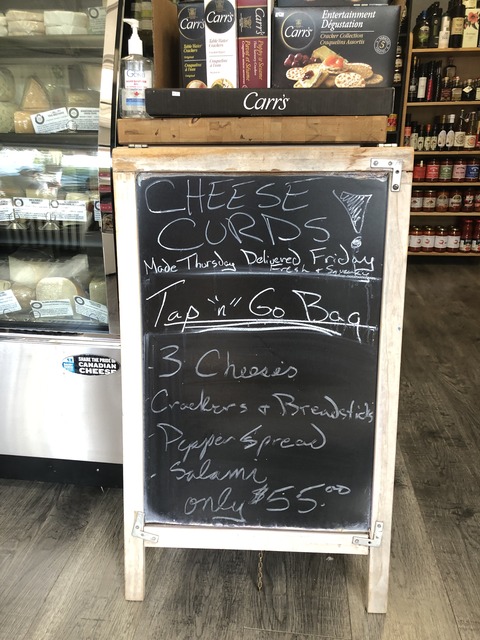 Carr's
Carr's
Carr's
Entertainment
Dégustation
Cracker Collection
Craquelins Assortis
Carr's
CHEESE
CURDS!
Made Thursday Delivered Friday
Fresh & Squeaky
Tap "n" Go Bag
- 3 Cheeses
Crackers & Breadsticks
- Pepper Spread
- Salami
only $55.00
SHARE THE PRIDE OF
CANADIAN
CHEESE